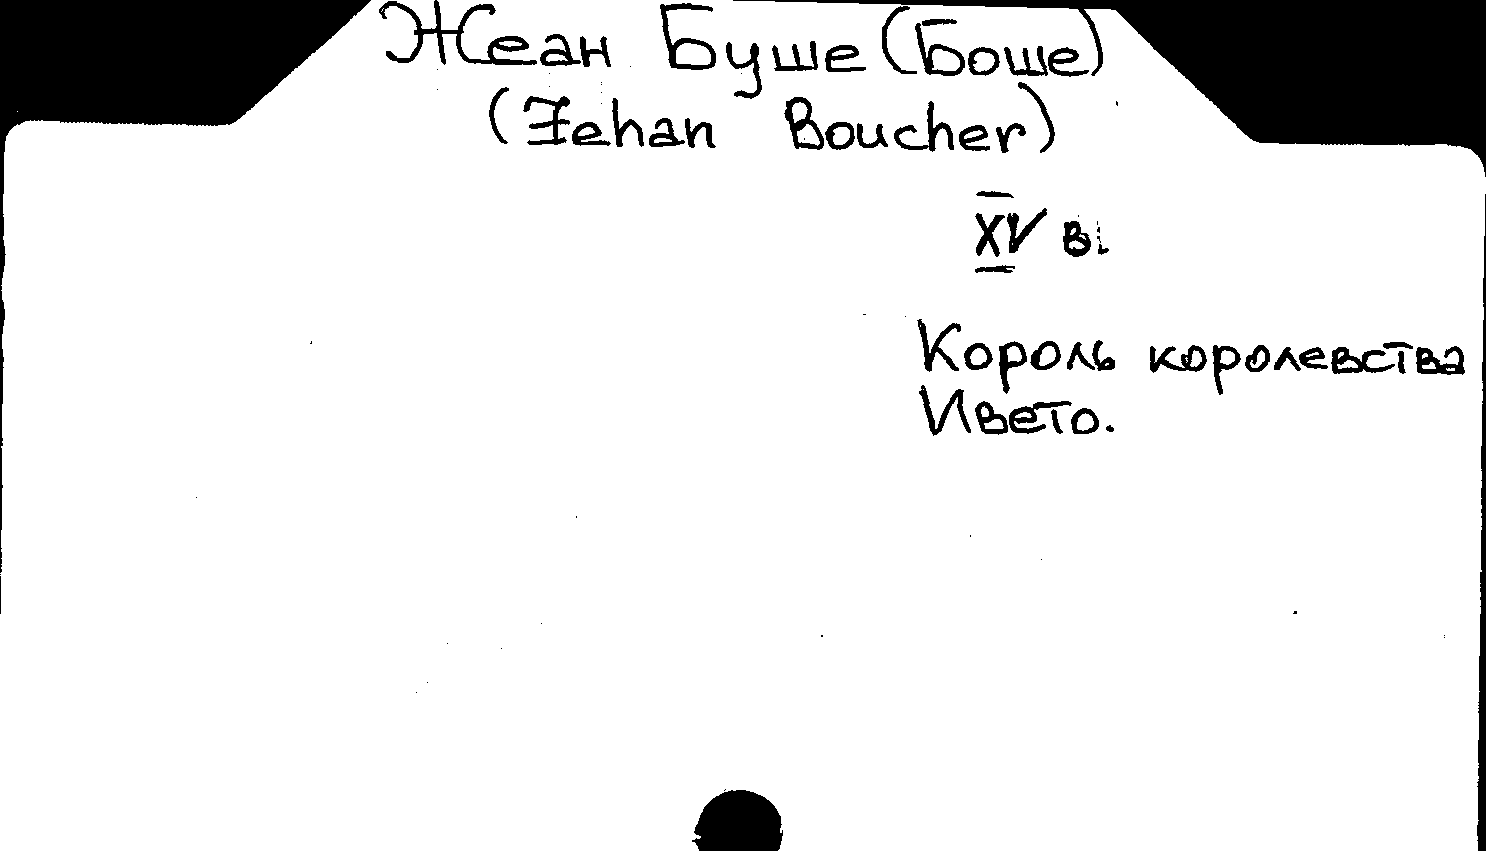 Жеан Буше (Боше)
(Jehan Boucher)
XV в.
Король королевства
Ивето.